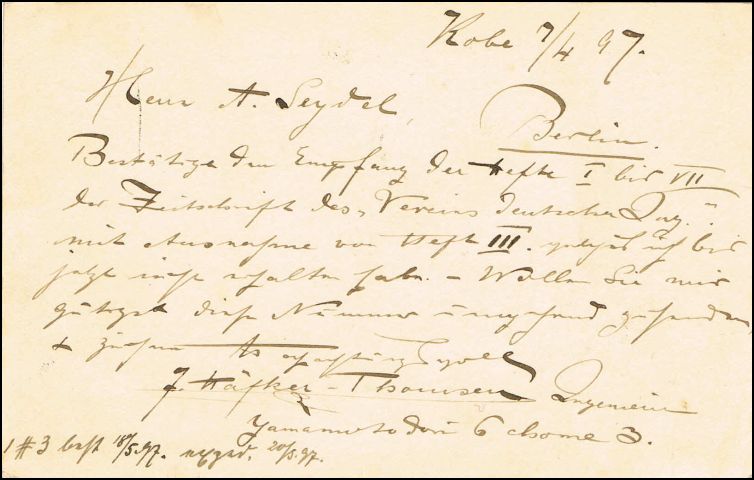 Kobe 7/4 97.
Herrn A. Seydel,
Berlin.
Bestätige den Empfang der Hefte I bis VII
der Zeitschrift des Vereins deutscher Ing.
mit Ausnahme von Heft III. welches ich bis
jetzt nicht erhalten habe. – Wollen Sie mir
gütigst diese Nummer umgehend zusenden
Hochachtungsvoll
J. Häfker-Thomsen Ingenieur
Yamamotodori 6 chome 3.
1 # 3 best 18/5.97. 20/5.97.